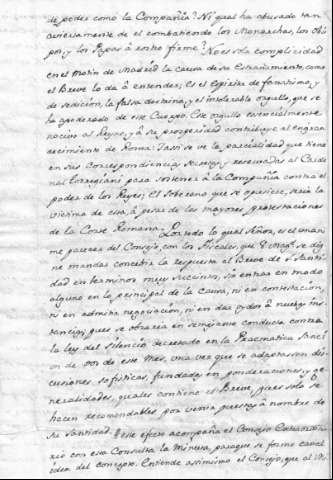 de podes como la Compañia? Ni qual ha abusado tan
ominosamente de el combatiendo los Monarchas, los Obis
pos, y los Papas à entre firme? No es sola complicidad
en el Motin de Madrid la causa de su Estrañamiento, como
el Breve lo dà à entender; Es el Espiritu de fanatismo, y
de sedicion, la falsa doctrina, y el intolerable orgullo, que se
ha apoderado de este Cuerpo. Este orgullo esencialmente
nocivo al Reyno, y à su prosperidad contribuye al engran
decimiento de Roma: Y assi se ve la parcialidad que tiene
en sus correspondencias secretas, y reservadas al Carde
nal Torregiani para sostener à la Compañia contra el
poder de los Reyes; El Soberano que se opusiese, seria la
victima de esta, à pesar de las mayores protestaciones
de la Corte Romana. Por todo lo qual Señor, es el unani
me parecer del Consejo, con los Fiscales, que V. Mag.d se dig
ne mandar concebir la respuesta al Breve de su Santi
dad en terminos muy succintos, sin entrar en modo
alguno en lo principal de la Causa, ni en contestacion,
ni en admitir negociacion, ni en dar oydos à nuebas ins
tancias, pues se obraria en semejante conducta contra
la ley del silencio decretado en la Pracmatica Sanci
on de dos de este Mes, una vez que se adaptasen dis
cursiones sofisticas, fundadas en ponderaciones, y ge
neralidades, quales contiene el Breve, pues solo se
hacen recomendables por venir puestas à nombre de
Su Santidad. A este efecto acompaña el Consejo Extraordina
rio con esta Consulta la Minuta, para que se forme cabal
idea del concepto. Entiende assimismo el Consejo, que al Mi